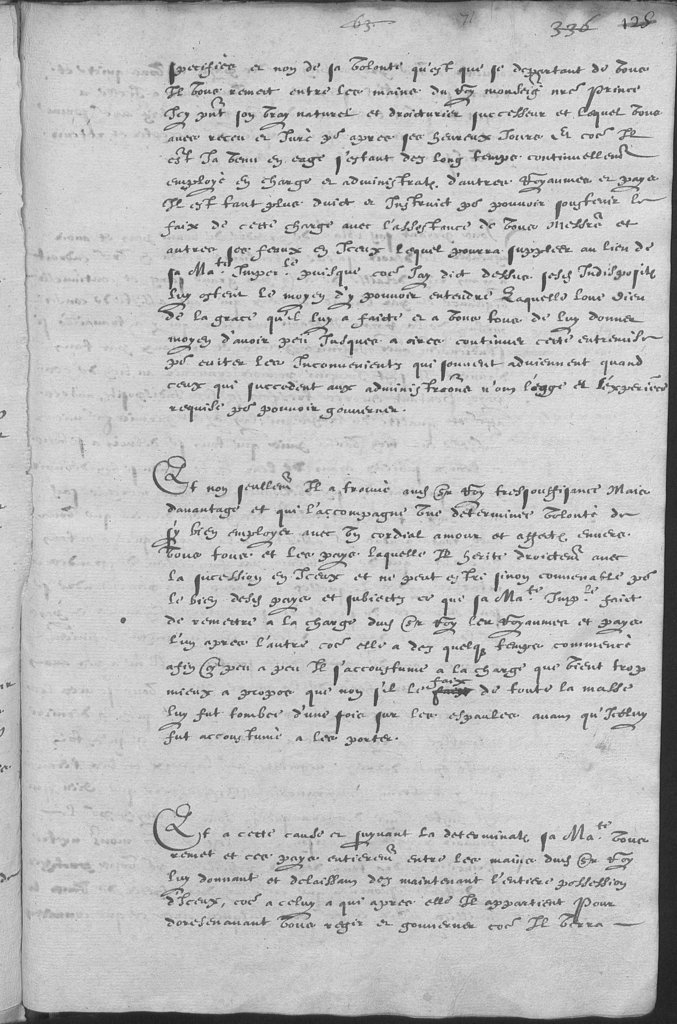 63.
71
336 128
specifiés et non de sa volonté qu'est que se departant de vous
Il vous remet entre les mains du Roy monseigr nre Prince
Icy pnt son vray naturel et droicturier successeur et lequel vous
avez receu et Juré po apres ses heureux Jours Et coe Il
est Ja venu en eage s'estant dez long temps continuellemt
employé en charge et administraton d'autres Royaumes et pays
Il est tant plus duict et Instruict po pouvoir soustenir le
faix de ceste charge avec l'assistance de vous Messrs et
autres ses feaux en Iceux lequel pourra suppleer au lieu de
sa Mate Imperle puisque coe J'ay dict dessus sesd Indispositons
luy ostent le moyen d'y pouvoir entendre Laquelle loue dieu
de la grace qu'il luy a faicte et a vous tous de luy donner
moyen d'avoir peu Jusques a ores continuer ceste entremise
po eviter les Inconveniens qui souvent adviennent quand
ceux qui succedent aux administraons n'ont l'eage et l'experience
requise po pouvoir gouverner.
Et non seullemt Il a trouvé aud Sr Roy tressouffisance Mais
davantage et qui l'accompagne une determinee volonté de
sy bien employer avec un cordeal amour et affecton envers
vous tous et les pays laquelle Il herite droictemt avec
la sucession en Iceux et ne peut estre sinon convenable po
le bien desd pays et subiects ce que sa Mate Imple faict
de remectre a la charge dud Sr Roy les Royaumes et pays
l'un apres l'autre coe elle a dez quelq temps commencé
afin q peu a peu Il s'accoustume a la charge que vient trop
mieux a propos que non s'il le faix de toute la masse
luy fut tombee d'une fois sur les espaules avant qu'Iceluy
fut accoustumé a les porter.
Et a ceste cause et suyvant la determinaton sa Mate vous
remet et ces pays entieremt entre les mains dud Sr Roy
luy donnant et delaissant dez maintenant l'entiere possession
d'Iceux, coe a celuy a qui apres elle Il appartient Pour
doresenavant vous regir et gouverner coe Il verra